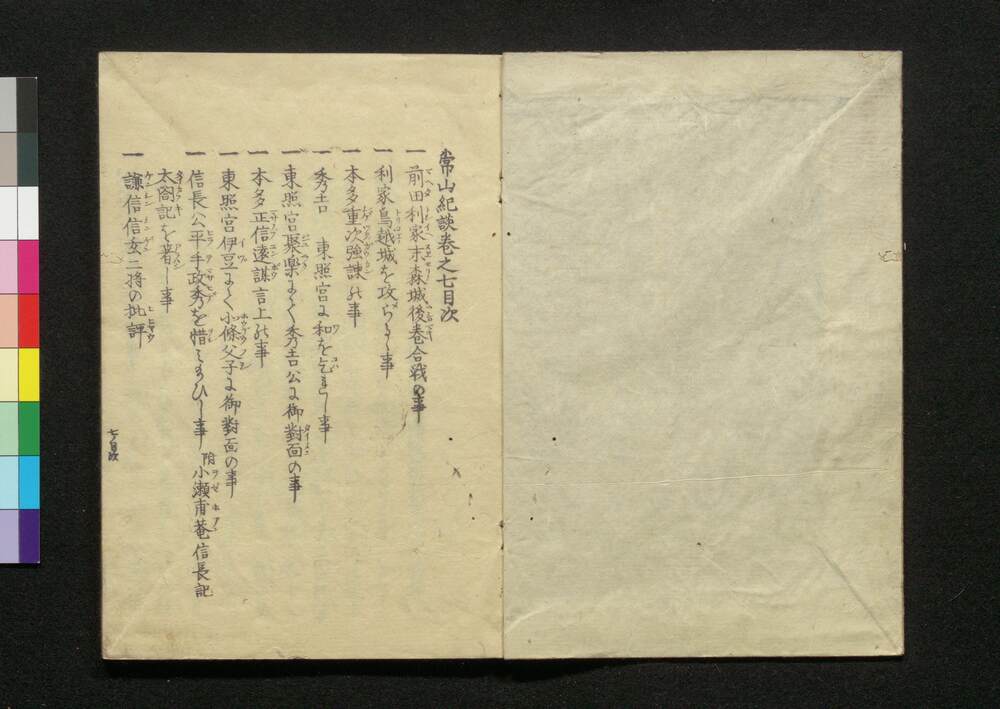 常山紀談巻之七目次
一 前田利家末森城後巻合戦の事
一 利家鳥越城を攻らるゝ事
一 本多重次強諌の事
一 秀吉 東照宮に和を乞れし事
一 東照宮聚楽にて秀吉公に御對面の事
一 本多正信遠謀言上の事
一 東照宮伊豆にて北條父子に御對面の事
一 信長公平手政秀を惜みたまひし事 附 小瀬甫菴信長記
太閤記を著しし事
一 謙信信玄二将の批評
七ノ目次